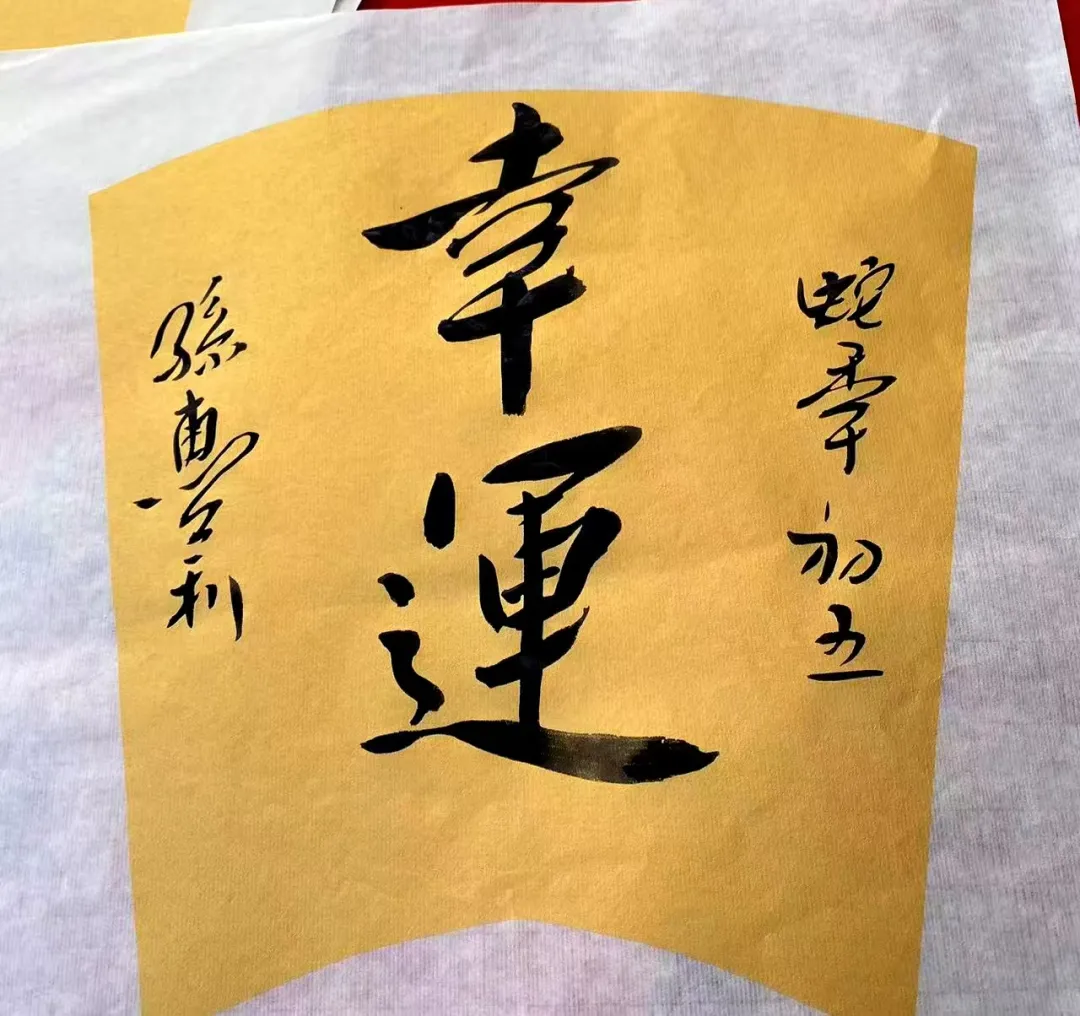 蛇年初五
幸運
孫惠利